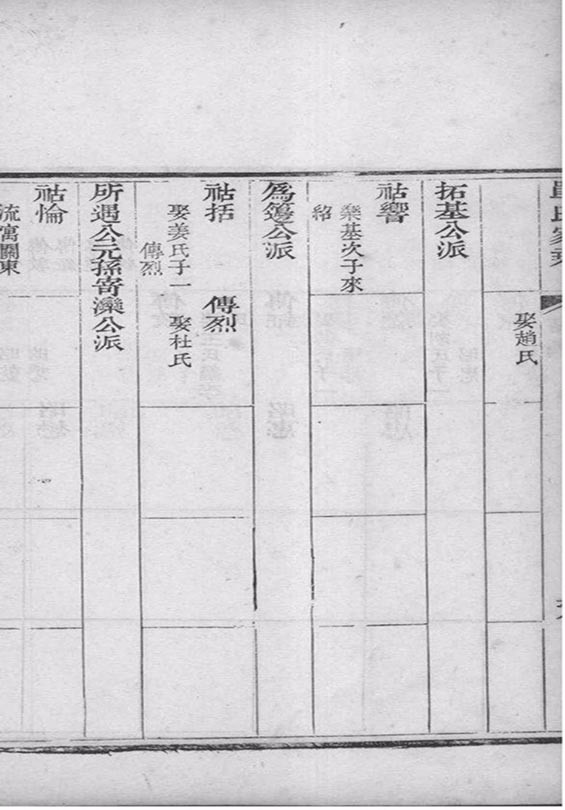 娶趙氏
拓基公派
祜響
樂基次子來
紹
為籩公派
祜括 傳烈
娶姜氏子一 娶杜氏
傳烈
所遇公元孫寄灤公派
祜惀
流寓關東